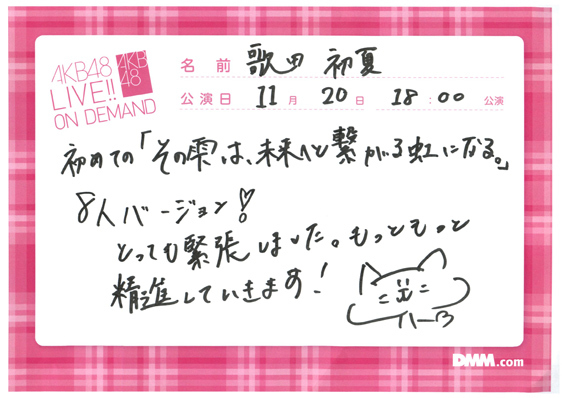 AKB48
LIVE!!
ON DEMAND
AKB
48
名前 歌田 初夏
公演日 11月 20日 18:00 公演
初めての「その雫は、未来へと繋がる虹になる。」
8人バージョン!
とっても緊張しました。もっともっと
精進していきます!
DMM.com